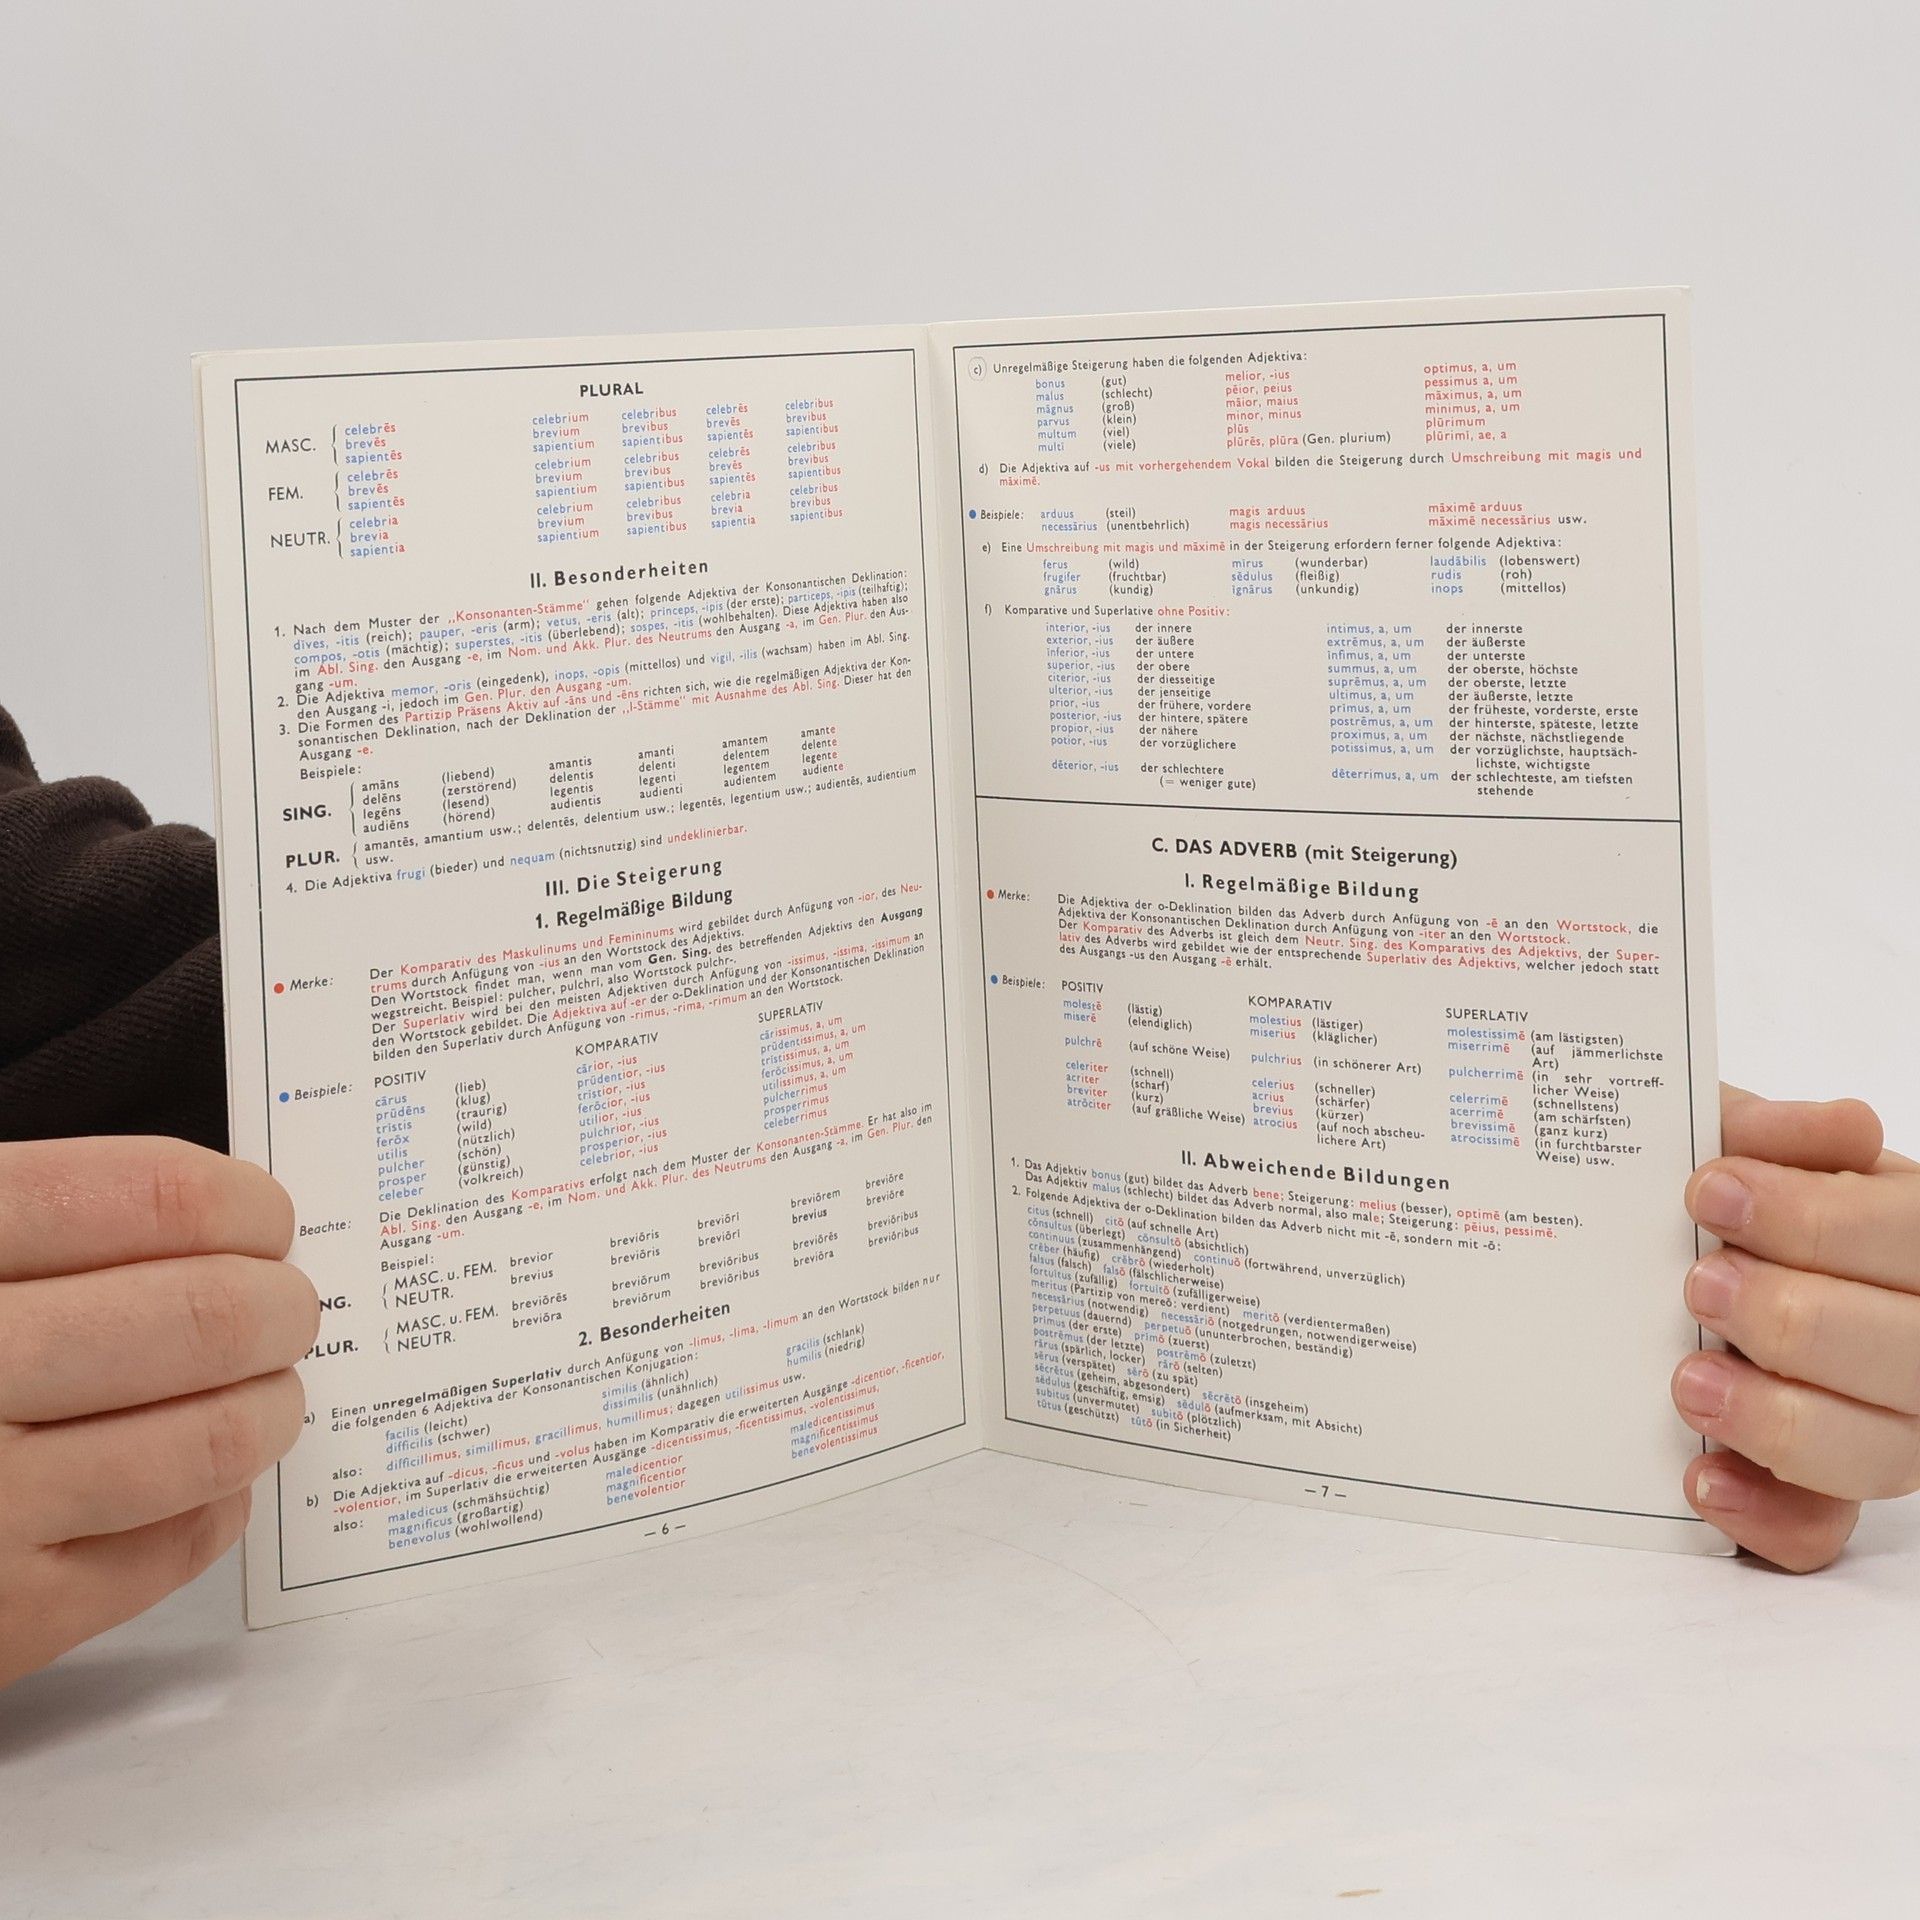 PLURAL
MASC. celebrēs celebrium celebribus celebrēs celebribus
brevēs brevium brevibus brevēs brevibus
sapientēs sapientium sapientibus sapientēs sapientibus
FEM. celebrēs celebrium celebribus celebrēs celebribus
brevēs brevium brevibus brevēs brevibus
sapientēs sapientium sapientibus sapientēs sapientibus
NEUTR. celebria celebrium celebribus celebria celebribus
brevia brevium brevibus brevia brevibus
sapientia sapientium sapientibus sapientia sapientibus
II. Besonderheiten
1. Nach dem Muster der „Konsonanten-Stämme" gehen folgende Adjektiva der Konsonantischen Deklination:
dīves, -itis (reich); pauper, -eris (arm); vetus, -eris (alt); princeps, -ipis (der erste); particeps, -ipis (teilhaftig);
compos, -otis (mächtig); superstes, -itis (überlebend); sospes, -itis (wohlbehalten). Diese Adjektiva haben also
im Abl. Sing. den Ausgang -e, im Nom. und Akk. Plur. des Neutrums den Ausgang -a, im Gen. Plur. den Aus-
gang -um.
2. Die Adjektiva memor, -oris (eingedenk), inops, -opis (mittellos) und vigil, -ilis (wachsam) haben im Abl. Sing.
den Ausgang -i, jedoch im Gen. Plur. den Ausgang -um.
3. Die Formen des Partizip Präsens Aktiv auf -āns und -ēns richten sich, wie die regelmäßigen Adjektiva der Kon-
sonantischen Deklination, nach der Deklination der „I-Stämme" mit Ausnahme des Abl. Sing. Dieser hat den
Ausgang -e.
Beispiele:
SING. amāns (liebend) amantis amanti amantem amante
delēns (zerstörend) delentis delenti delentem delente
legēns (lesend) legentis legenti legentem legente
audiēns (hörend) audientis audienti audientem audiente
PLUR. amantēs, amantium usw.; delentēs, delentium usw.; legentēs, legentium usw.; audientēs, audientium
usw.
4. Die Adjektiva frugi (bieder) und nequam (nichtsnutzig) sind undeklinierbar.
III. Die Steigerung
1. Regelmäßige Bildung
Merke: Der Komparativ des Maskulinums und Femininums wird gebildet durch Anfügung von -ior, des Neu-
trums durch Anfügung von -ius an den Wortstock des Adjektivs.
Den Wortstock findet man, wenn man vom Gen. Sing. des betreffenden Adjektivs den Ausgang
wegstreicht. Beispiel: pulcher, pulchrī, also Wortstock pulchr-.
Der Superlativ wird bei den meisten Adjektiven durch Anfügung von -issimus, -issima, -issimum an
den Wortstock gebildet. Die Adjektiva auf -er der o-Deklination und der Konsonantischen Deklination
bilden den Superlativ durch Anfügung von -rimus, -rima, -rimum an den Wortstock.
Beispiele: POSITIV KOMPARATIV SUPERLATIV
cārus (lieb) cārior, -ius cārissimus, a, um
prūdēns (klug) prūdentior, -ius prūdentissimus, a, um
tristis (traurig) tristior, -ius tristissimus, a, um
ferōx (wild) ferōcior, -ius ferōcissimus, a, um
utilis (nützlich) utilior, -ius utilissimus, a, um
pulcher (schön) pulchrior, -ius pulcherrimus
prosper (günstig) prosperior, -ius prosperrimus
celeber (volkreich) celebrior, -ius celeberrimus
Beachte: Die Deklination des Komparativs erfolgt nach dem Muster der Konsonanten-Stämme. Er hat also im
Abl. Sing. den Ausgang -e, im Nom. und Akk. Plur. des Neutrums den Ausgang -a, im Gen. Plur. den
Ausgang -um.
Beispiel:
NG. MASC. u. FEM. brevior breviōris breviōri breviōrem breviōre
NEUTR. brevius breviōris breviōri brevius breviōre
PLUR. MASC. u. FEM. breviōrēs breviōrum breviōribus breviōrēs breviōribus
NEUTR. breviōra breviōrum breviōribus breviōra breviōribus
2. Besonderheiten
a) Einen unregelmäßigen Superlativ durch Anfügung von -limus, -lima, -limum an den Wortstock bilden nur
die folgenden 6 Adjektiva der Konsonantischen Konjugation:
facilis (leicht) similis (ähnlich) gracilis (schlank)
difficilis (schwer) dissimilis (unähnlich) humilis (niedrig)
also: difficillimus, simillimus, gracillimus, humillimus; dagegen utilissimus usw.
b) Die Adjektiva auf -dicus, -ficus und -volus haben im Komparativ die erweiterten Ausgänge -dicentior, -ficentior,
-volentior, im Superlativ die erweiterten Ausgänge -dicentissimus, -ficentissimus, -volentissimus,
also: maledicus (schmähsüchtig) maledicentior maledicentissimus
magnificus (großartig) magnificentior magnificentissimus
benevolus (wohlwollend) benevolentior benevolentissimus
— 6 —
c) Unregelmäßige Steigerung haben die folgenden Adjektiva:
bonus (gut) melior, -ius optimus, a, um
malus (schlecht) pēior, peius pessimus a, um
māgnus (groß) māior, maius māximus, a, um
parvus (klein) minor, minus minimus, a, um
multum (viel) plūs plūrimum
multi (viele) plūrēs, plūra (Gen. plurium) plūrimi, ae, a
d) Die Adjektiva auf -us mit vorhergehendem Vokal bilden die Steigerung durch Umschreibung mit magis und
māximē.
Beispiele: arduus (steil) magis arduus māximē arduus
necessārius (unentbehrlich) magis necessārius māximē necessārius usw.
e) Eine Umschreibung mit magis und māximē in der Steigerung erfordern ferner folgende Adjektiva:
ferus (wild) mīrus (wunderbar) laudābilis (lobenswert)
frugifer (fruchtbar) sēdulus (fleißig) rudis (roh)
gnārus (kundig) ignārus (unkundig) inops (mittellos)
f) Komparative und Superlative ohne Positiv:
interior, -ius der innere intimus, a, um der innerste
exterior, -ius der äußere extrēmus, a, um der äußerste
inferior, -ius der untere īnfimus, a, um der unterste
superior, -ius der obere summus, a, um der oberste, höchste
citerior, -ius der diesseitige suprēmus, a, um der oberste, letzte
ulterior, -ius der jenseitige ultimus, a, um der äußerste, letzte
prior, -ius der frühere, vordere primus, a, um der früheste, vorderste, erste
posterior, -ius der hintere, spätere postrēmus, a, um der hinterste, späteste, letzte
propior, -ius der nähere proximus, a, um der nächste, nächstliegende
potior, -ius der vorzüglichere potissimus, a, um der vorzüglichste, hauptsäch-
lichste, wichtigste
dēterior, -ius der schlechtere dēterrimus, a, um der schlechteste, am tiefsten
(= weniger gute) stehende
C. DAS ADVERB (mit Steigerung)
I. Regelmäßige Bildung
Merke: Die Adjektiva der o-Deklination bilden das Adverb durch Anfügung von -ē an den Wortstock, die
Adjektiva der Konsonantischen Deklination durch Anfügung von -iter an den Wortstock.
Der Komparativ des Adverbs ist gleich dem Neutr. Sing. des Komparativs des Adjektivs, der Super-
lativ des Adverbs wird gebildet wie der entsprechende Superlativ des Adjektivs, welcher jedoch statt
des Ausgangs -us den Ausgang -ē erhält.
Beispiele: POSITIV KOMPARATIV SUPERLATIV
molestē (lästig) molestius (lästiger) molestissimē (am lästigsten)
miserē (elendiglich) miserius (kläglicher) miserrimē (auf jämmerlichste
Art)
pulchrē (auf schöne Weise) pulchrius (in schönerer Art) pulcherrimē (in sehr vortreff-
licher Weise)
celeriter (schnell) celerius (schneller) celerrimē (schnellstens)
acriter (scharf) acrius (schärfer) acerrimē (am schärfsten)
breviter (kurz) brevius (kürzer) brevissimē (ganz kurz)
atrōciter (auf gräßliche Weise) atrocius (auf noch abscheu- atrocissimē (in furchtbarster
lichere Art) Weise) usw.
II. Abweichende Bildungen
1. Das Adjektiv bonus (gut) bildet das Adverb bene; Steigerung: melius (besser), optimē (am besten).
Das Adjektiv malus (schlecht) bildet das Adverb normal, also male; Steigerung: pēius, pessimē.
2. Folgende Adjektiva der o-Deklination bilden das Adverb nicht mit -ē, sondern mit -ō:
citus (schnell) citō (auf schnelle Art)
cōnsultus (überlegt) cōnsultō (absichtlich)
continuus (zusammenhängend) continuō (fortwährend, unverzüglich)
crēber (häufig) crēbrō (wiederholt)
falsus (falsch) falsō (fälschlicherweise)
fortuitus (zufällig) fortuitō (zufälligerweise)
meritus (Partizip von mereō: verdient) meritō (verdientermaßen)
necessārius (notwendig) necessāriō (notgedrungen, notwendigerweise)
perpetuus (dauernd) perpetuō (ununterbrochen, beständig)
primus (der erste) primō (zuerst)
postrēmus (der letzte) postrēmō (zuletzt)
rārus (spärlich, locker) rārō (selten)
sērus (verspätet) sērō (zu spät)
sēcrētus (geheim, abgesondert) sēcrētō (insgeheim)
sēdulus (geschäftig, emsig) sēdulō (aufmerksam, mit Absicht)
subitus (unvermutet) subitō (plötzlich)
tūtus (geschützt) tūtō (in Sicherheit)
— 7 —